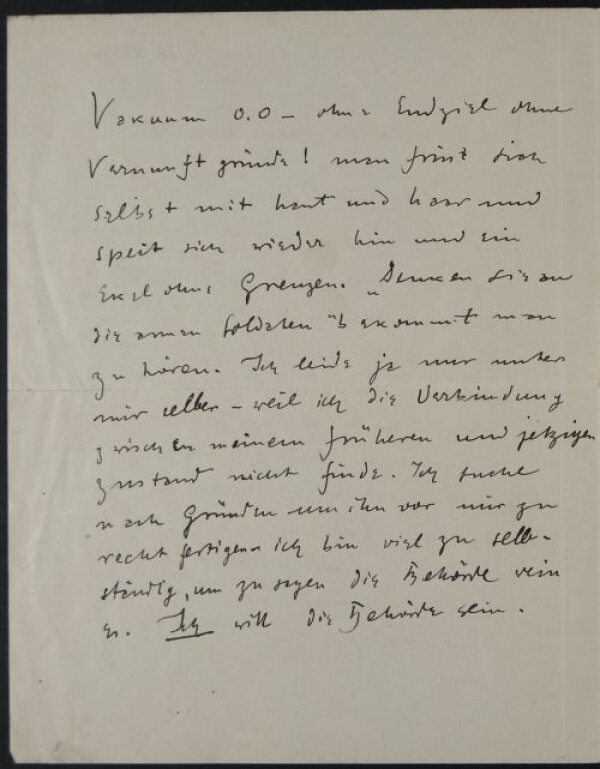 Vakuum 0.0 – ohne Endziel ohne
Vernunftgründe! man frisst sich
selbst mit haut und haar und
speit sich wieder hin und ein
Ekel ohne Grenzen. „Denken Sie an
die armen Soldaten" bekommt man
zu hören. Ich leide ja nur unter
mir selber – weil ich die Verbindung
zwischen meinem früheren und jetzigen
zustand nicht finde. Ich suche
nach Gründen um ihn vor mir zu
rechtfertigen ich bin viel zu selb-
ständig, um zu sagen die Behörde
es. Ich will die Behörde sein.